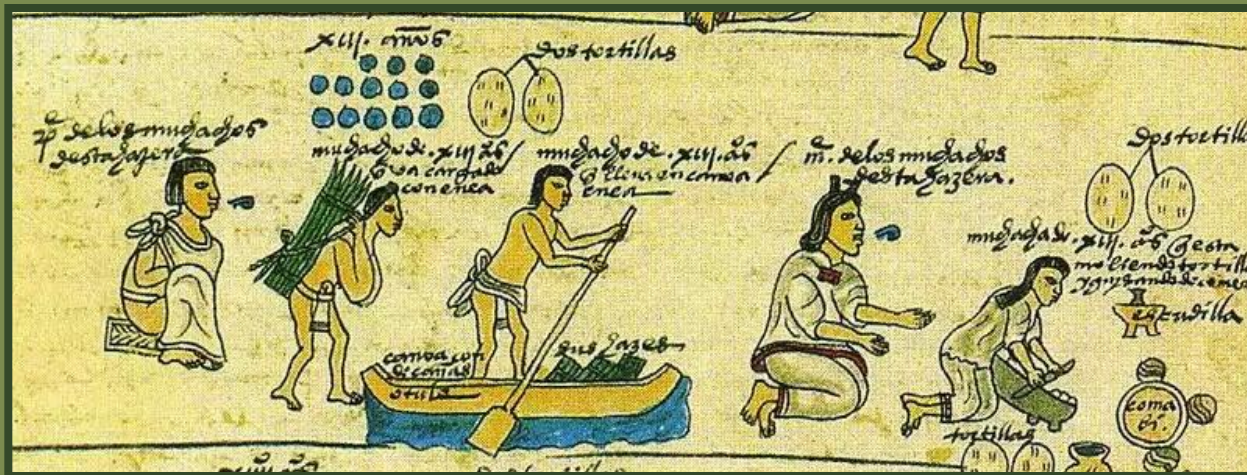 xiij. años
dos tortillas
p̄. de los muchachos
desta hazera
muchacho de. xiij. ās
q̄ va cargado
con enea
muchacho de. xiij. ās
q̄ lleva en canoa
enea
m̄. de los muchachos
desta hazera.
dos tortill
muchacha de. xiij. ās q̄ esta
moliendo tortill
escudilla
canoa con
de cañas
sus hazes
comal
tortillas